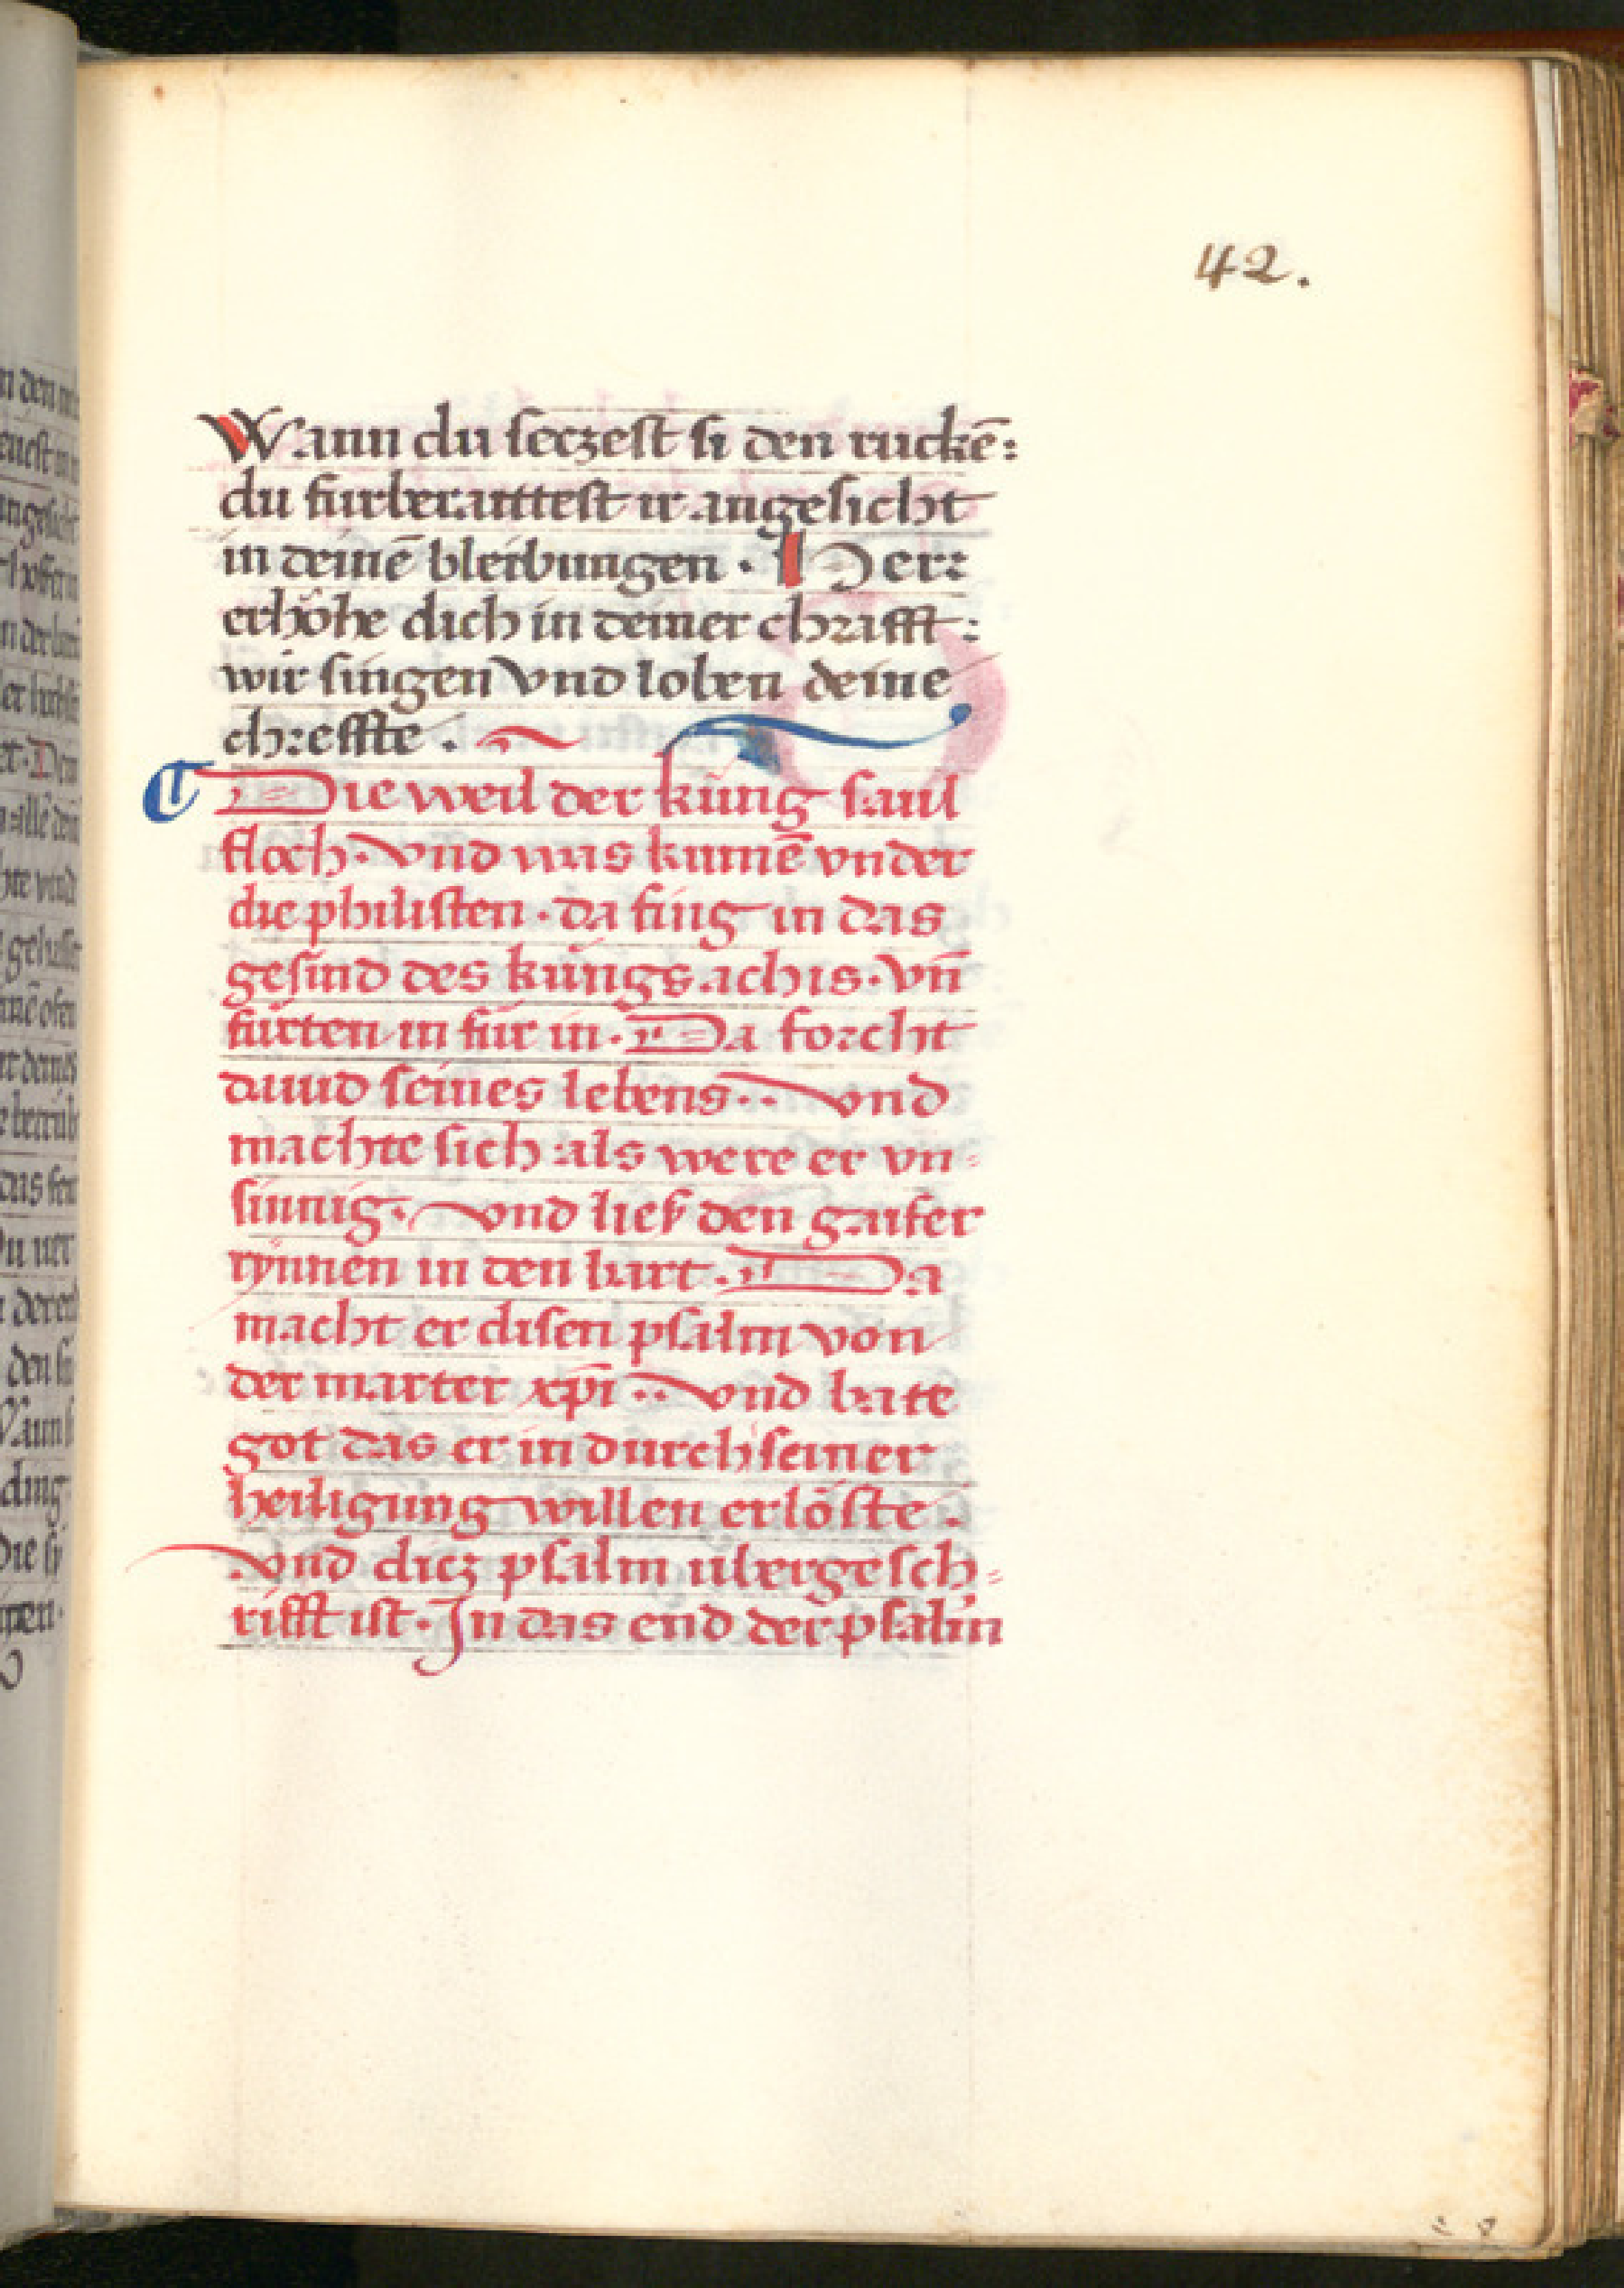 42.
Wann du seczest si den ruckē:
du furberaittest ir angesicht
in deinē bleibungen · Herr
erhöhe dich in deiner chrafft:
wir singen vnd loben deine
chreffte .
Die weil der küng saul
floch · vnd was kumē vnder
die philisten · da fing in das
gesind des küngs achis · vn̄
fürten in für in · Da forcht
dauid seines lebens ·· vnd
machte sich als were er vn-
sinnig · vnd lieſ den gaifer
rynnen in den bart · Da
macht er disen psalm von
der marter xp̄i ·· vnd bate
got das er in durch seiner
heiligung willen erlöste .
vnd dicz psalm ubergesch=
rifft ist · In das end der psalm